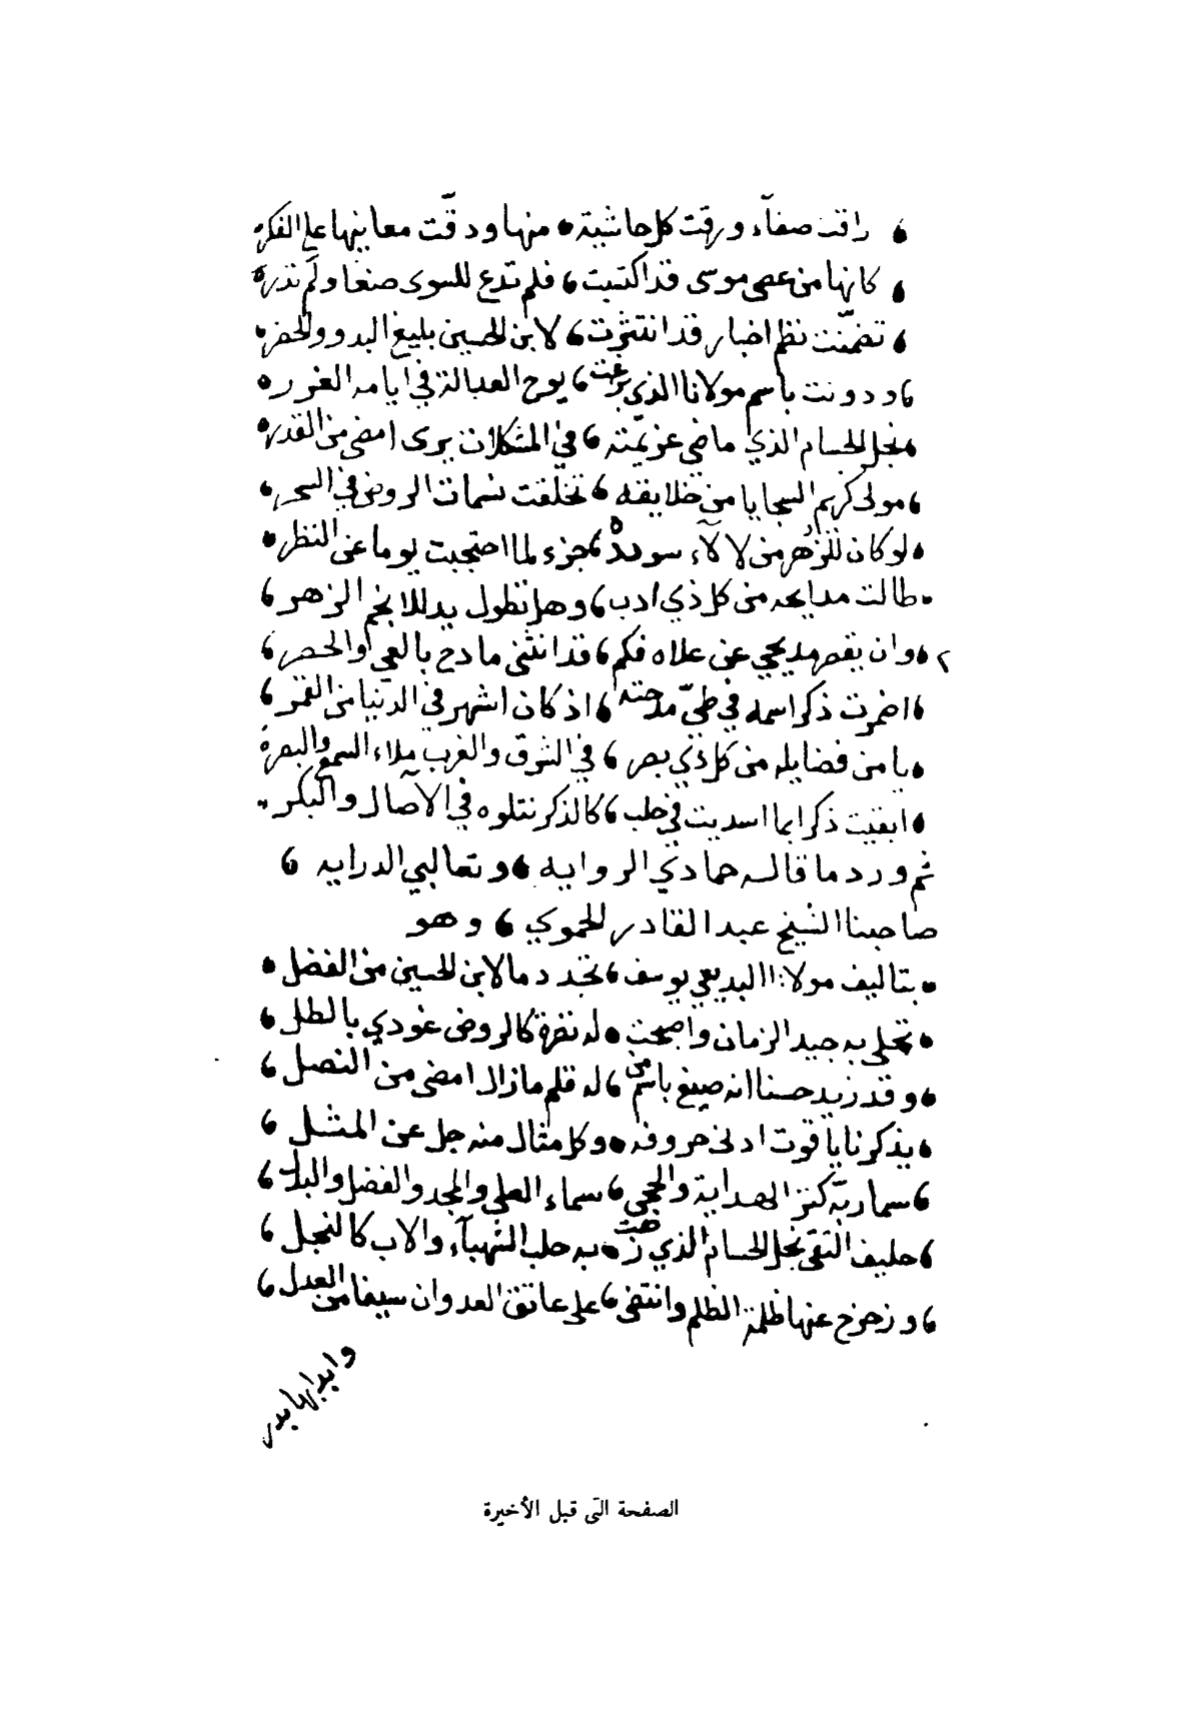 راقت صفآء ورقت كل حاشية • منها ودقّت معانيها على الفكر
كانها من عصى موسى قد اكتسبت ، فلم تدع للسوى صنعا ولم تذر
تضمّنت نظم اخبار قد انتثرت ، لابن الحسين بليغ البدو والحضر
ودونت باسم مولانا الذي بزغت ، يوح العدالة في ايامه الغرر
نجل الحسام الذي ماضي عزيمته ، في المشكلات يرى امضى من القدر
مولى كريم السجايا من خلايقه ، تخلّقت نسمات الروض في السحر
لو كان للزُهر من لالآء سودده ، جزء لما احتجبت يوما عن النظر
طالت مدايحه من كل ذي ادب ، وهل تطول يد للانجم الزهر
وان يقصر مديحي عن علاه فكم ، قد انثنى مادح بالعي والحصر
اضمرت ذكر اسمه في طيّ مدحته ، اذ كان اشهر في الدنيا من القمر
يا من فضايله من كل ذي بصر ، في الشرق والغرب ملاء السمع والبصر
ابقيت ذكرا بما اسديت في حلب ، كالذكر نتلوه في الآصال والبكر
ثم ورد ما قاله حمادي الروايه ، وثعالبي الدرايه ،
صاحبنا الشيخ عبد القادر الحموي ، وهو
بتاليف مولانا البديعي يوسف ، تجدد ما لابن الحسين من الفضل
تحلى به جيد الزمان واصبحت • له نضرة كالروض غودي بالطل
وقد زيد حسنا انه صيغ باسم من ، له قلم ما زال امضى من النصل
يذكرنا ياقوت ادنى حروفه • وكل مثال منه جل عن المثل
سما ربّه كنز الهداية والحجى ، سماء العلى والمجد والفضل والبذل
حليف التقى نجل الحسام الذي زهت • به حلب الشهبآء والاب كالنجل
وزحزح عنها ظلمة الظلم وانتضى ، على عاتق العدوان سيفا من العدل
وابدالها بدر
الصفحة التى قبل الأخيرة